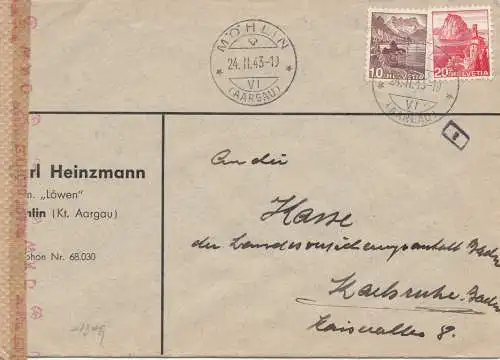 MÖHLIN
24.II.43-19
VI
(AARGAU)
10 HELVETIA
20 HELVETIA
24.II.43-19
VI
(AARGAU)
rl Heinzmann
m. „Löwen"
hlin (Kt. Aargau)
phon Nr. 68.030
An die
Kasse
der Landesversicherungsanstalt Baden
Karlsruhe, Baden
Kaiserallee 8.